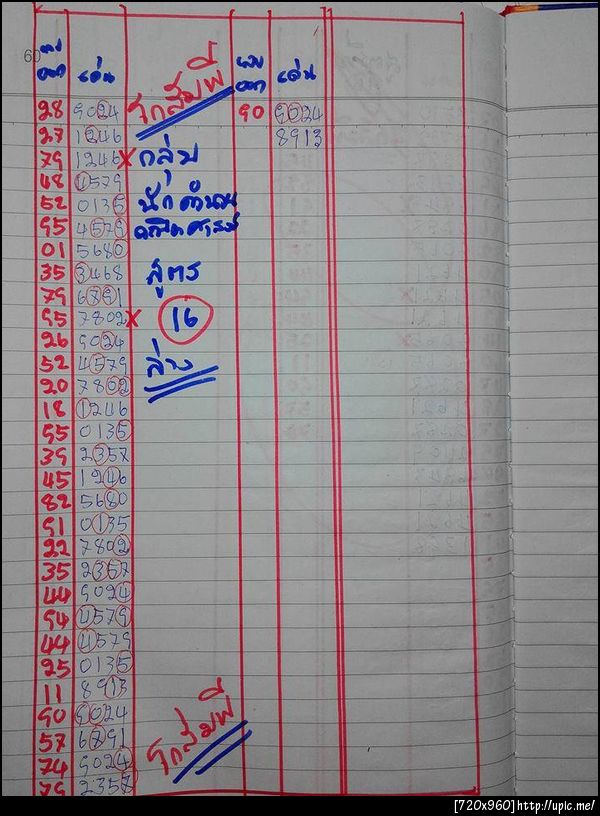 60
ผล ออก เด่น โกสัมพี ผล ออก เด่น
28 9024 90 9024
27 1246 8913
79 1246 x กลุ่ม
48 4579
52 0135 นักคำนวณ
95 4579 คณิตศาสตร์
01 5680
35 3468 สูตร
79 6791
95 7802 x 16
26 9024
52 4579 ล่าง
20 7802
18 1246
95 0135
39 2357
45 1246
82 5680
91 0135
22 7802
35 2357
44 9024
94 4579
44 4579
25 0135
11 8913
90 9024
57 6791 โกสัมพี
74 9024
79 2357
[720x960]http://upic.me/